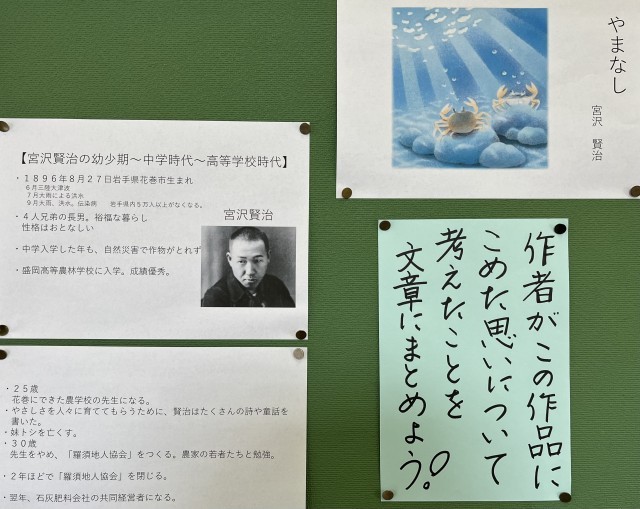 やまなし
宮沢 賢治
【宮沢賢治の幼少期～中学時代～高等学校時代】
・１８９６年８月２７日岩手県花巻市生まれ
６月三陸大津波
７月大雨による洪水
９月大雨、洪水。伝染病 岩手県内５万人以上がなくなる。
・４人兄弟の長男。裕福な暮らし
性格はおとなしい
宮沢賢治
・中学入学した年も、自然災害で作物がとれず
・盛岡高等農林学校に入学。成績優秀。
・２５歳
花巻にできた農学校の先生になる。
・やさしさを人々に育ててもらうために、賢治はたくさんの詩や童話を
書いた。
・妹トシを亡くす。
・３０歳
先生をやめ、「羅須地人協会」をつくる。農家の若者たちと勉強。
・２年ほどで「羅須地人協会」を閉じる。
・翌年、石灰肥料会社の共同経営者になる。
作者がこの作品に
こめた思いについて
考えたことを
文章にまとめよう！